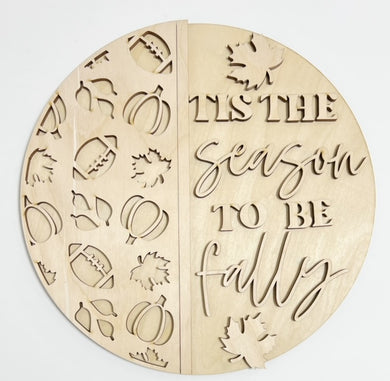 TIS THE
season
TO BE
fally